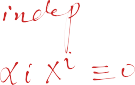 indep
αi x^i ≡ 0